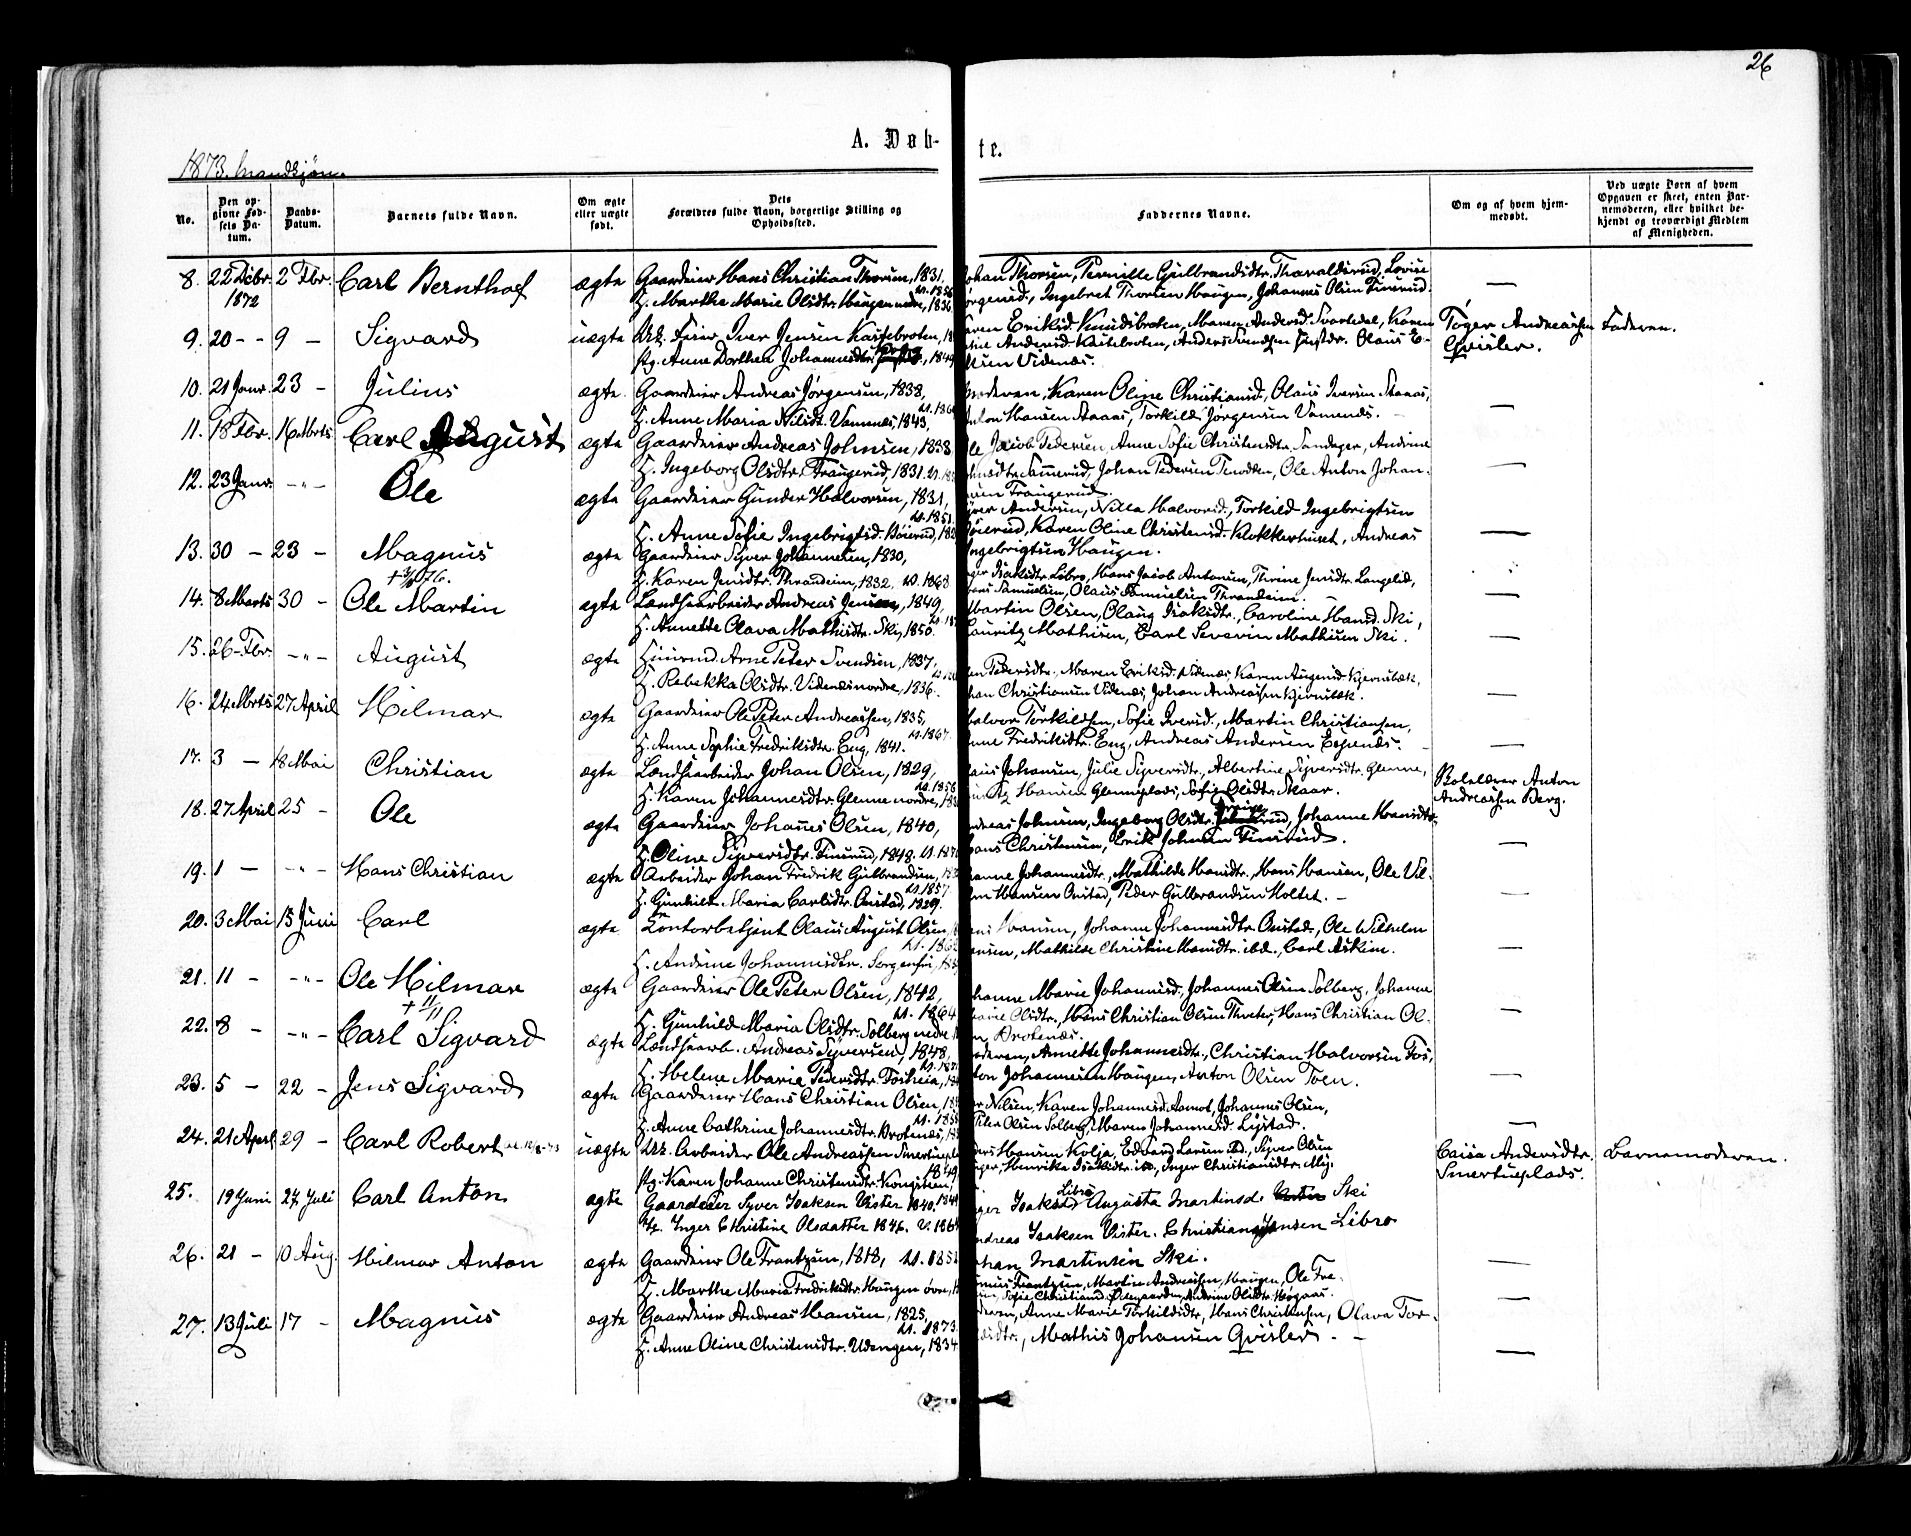 26
A. Døb-te.
1873. Mandkjøn.
No.
Den opgivne Fødsels Datum.
Daabs-Datum.
Barnets fulde Navn.
Om ægte eller uægte født.
Dets Forældres fulde Navn, borgerlige Stilling og Opholdssted.
Faddernes Navne.
Om og af hvem hjemmedøbt.
Ved uægte Børn af hvem Opgaven er skeet, enten Barnemoderen, eller hvilket bekjendt og troværdigt Medlem af Menigheden.
8. 22 Decbr. 1872 2 Fbr. Carl Bernthof ægte Gaardeier Hans Christian Thorsen, 1831,
H. Marthe Marie Olsdtr. Haugen nedre, 1836
Johan Thorsen, Pernille Gulbrandsdtr. Tharaldsrud, Lovise
Jørgensd., Ingebret Thorsen Haugen, Johannes Olsen Finsrud.
9. 20 - - 9 - Sigvard uægte Ukz. Iver Jensen Kastebroten,
Pg. Anne Dorthea Johannesdtr.
Karen Eriksd. Knudsbroten, Maren Andersd. Svartedal, Karen
Andersd. Kastebroten, Anders Svendsen Olaus E-
Videnæs.
Andreassen Gvisler.
Faderen.
10. 21 Janr. 23 - Julius ægte Gaardeier Andreas Jørgensen, 1838,
H. Anne Maria Nilsdt. Vamnæs, 1843,
Karen Oline Christiansd., Olaus Iversen Staaas,
Anton Hansen Aaaas, Torkild Jørgensen Vamnæs.
11. 18 Fbr. 16 Marts Carl August ægte Gaardeier Andreas Johnsen, 1838
H. Ingeborg Olsdtr. Traugerud, 1831.
Ole Jacob Pedersen, Anne Sofie Christensdtr. Sandager, Andrine
Johan Pedersen Tenodden, Ole Anton Johan-
sen Traugerud.
12. 23 Janr. -"- Ole ægte Gaardeier Gunder Halvorsen, 1831,
U. 1851.
H. Anne Sofie Ingebrigtsd. Bøierud,
Andersen, Nilla Halvorsd., Torkild Ingebrigtsen
Bøierud, Karen Oline Christensd. Klokkerhuset, Andreas
Ingebrigtsen Haugen.
13. 30 - 23 - Magnus ægte Gaardeier Syver Johannesen, 1830,
H. Karen Jensdtr. Thrandeim, 1832. U. 1868
Inger Isaksdtr. Libro, Hans Jacob Antonsen, Thrine Jensdtr. Langelid,
Hans Samuelsen, Olaus Samuelsen Thrandeim.
14. 8 Marts 30 - Ole Martin ægte Landhaarbeider Andreas Jensen, 1849,
H. Annette Olava Mathisdtr. Ski, 1850.
Martin Olsen, Olaug Isaksdtr., Caroline Hansd. Ski,
Lauritz Mathisen, Carl Severin Mathisen Ski.
15. 26 - Fbr. -"- August ægte Huusmd. Arne Peter Svendsen, 1837,
H. Rebekka Olsdtr. Videnæs nordre, 1836.
Pedersdtr., Maren Eriksd. Videnæs, Karen Augensd. Kjernsbæk,
Johan Christiansen Videnæs, Johan Andreassen Kjernsbæk.
16. 24 Marts 27 April Hilmar ægte Gaardeier Ole Peter Andreassen, 1835,
U. 1867
H. Anne Sophie Fredriksdtr. Eng, 1841.
Halvor Torkildsen, Sofie Iversd., Martin Christiansen,
Anne Fredriksdtr. Eng, Andreas Andersen Espenæs.
17. 3 - 18 Mai Christian ægte Landhaarbeider Johan Olsen, 1829,
U. 1858
H. Karen Johannesdtr. Glenne nordre,
Olaus Johansen, Julie Syversdtr., Albertine Syversdtr. Glenne,
Hansen Glenneplads, Sofie Olsdtr. Skaar.
Bolelærer Anton
Andreassen Berg.
18. 27 April 25 - Ole ægte Gaardeier Johannes Olsen, 1840,
H. Oline Syversdtr. Finsrud, 1848.
Andreas Johnsen, Ingeborg Olsdtr. Johanne Hansdtr.
Hans Christensen, Erik Johnsen Finsrud.
19. 1 - -"- Hans Christian ægte Arbeider Johan Fredrik Gulbrandsen,
U. 1857
H. Gunhild Maria Carlsdtr. Onstad, 1829.
Johanne Johannesdtr., Mathilde Hansdtr., Hans Hansen, Ole Vil-
Hansen Onstad, Peder Gulbrandsen Holtet.
20. 3 Mai 15 Juni Carl ægte Contorbetjent Olaus August Olsen
H. Andrine Johannesdtr. Sorgenfri,
Hansen, Johanne Johannesdtr. Onstad, Ole Wilhelm
Hansen, Mathilde Christine Hansdtr. ibd., Carl Askim.
21. 11 - -"- Ole Hilmar ægte Gaardeier Ole Peter Olsen, 1842,
U. 1864
H. Gunhild Maria Olsdtr. Solberg nedre
Johanne Marie Johannesd., Johannes Olsen Solberg, Johanne
Marie Olsdtr., Hans Christian Olsen Thveter, Hans Christian Ol-
sen Brotenæs.
22. 8 - -"- Carl Sigvard ægte Landhaarb. Andreas Syversen, 1848,
H. Helene Marie Pedersdtr. Fosheia,
Annette Johannesdtr., Christian Halvorsen Fos,
Anton Johannesen Haugen, Anton Olsen Toen.
23. 5 - 22 - Jens Sigvard ægte Gaardeier Hans Christian Olsen,
H. Anne Cathrine Johannesdtr. Brotenæs,
Nilsen, Karen Johannesd. Aamot, Johannes Olsen,
Peter Olsen Solberg, Maren Johannesd. Lystad.
24. 21 April 29 - Carl Robert uægte Ukz. Arbeider Ole Andreassen
1849
Pg. Karen Johanne Christensdtr. Kongsten,
Anders Hansen Kolja, Edvard Larsen ibd., Syver Olsen
Henrika Isaksdtr. ibd., Inger Christiansdtr. Mej.
Caisa Andersdtr.
Smertueplads.
Barnemoderen.
25. 19 Juni 27 Juli Carl Anton ægte Gaardeier Syver Isaksen Vister 1840.
H. Inger Christine Olsdatter 1846.
Inger Isaksd. Libro Augusta Martinsd. Ski
Andreas Isaksen Vister. Christian Jensen Libro
Johan Martinsen Ski.
26. 21 - 10 Aug. Hilmar Anton ægte Gaardeier Ole Frantzen, 1818,
H. Marthe Maria Fredriksdtr. Haugen øvre,
Frantzen, Martin Andreassen Haugen, Ole Fre-
Sofie Christiansd. Andrine Olsdtr. Høgaas.
27. 13 Juli 17 - Magnus ægte Gaardeier Andreas Hansen, 1825,
U. 1873.
H. Anne Oline Christensdtr. Udengen, 1834
Anne Marie Torkildsdtr., Hans Christensen, Olava Tor-
kildsdtr., Mathis Johansen Gvisler.